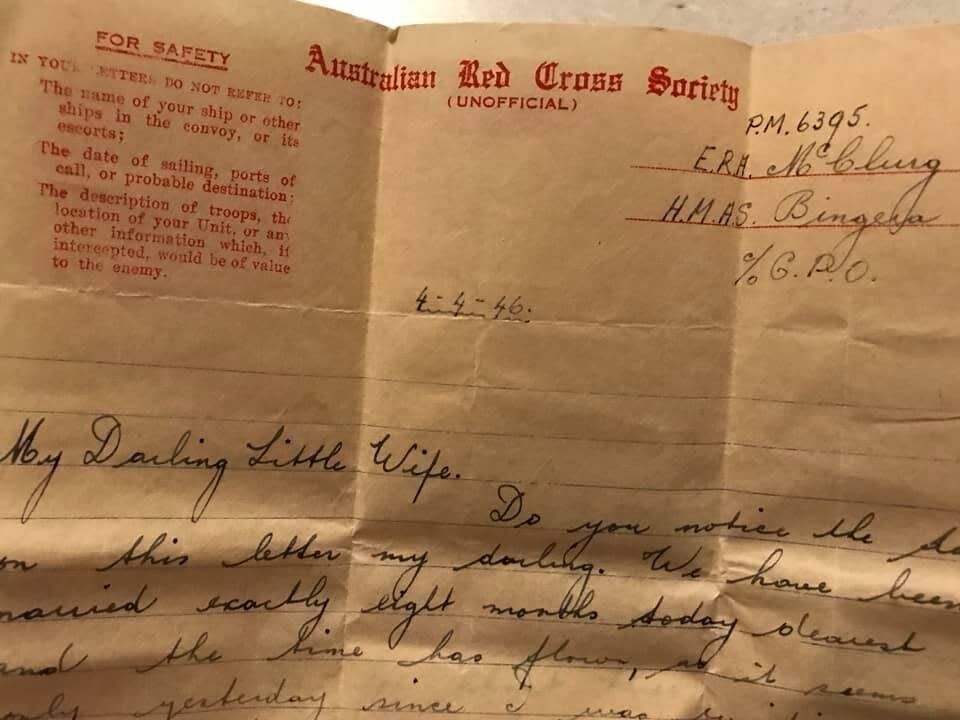 FOR SAFETY
IN YOUR LETTERS DO NOT REFER TO:
The name of your ship or other
ships in the convoy, or its
escorts;
The date of sailing, ports of
call, or probable destination;
The description of troops, the
location of your Unit, or any
other information which, if
intercepted, would be of value
to the enemy.
Australian Red Cross Society
(UNOFFICIAL)
P.M. 6395.
E.R.A. McClurg
H.M.A.S. Bingera
℅ G.P.O.
4-4-46.
My Darling Little Wife.
Do you notice the da
on this letter my darling. We have been
married exactly eight months today dearest
and the time has flown, as it seems
only yesterday since I was